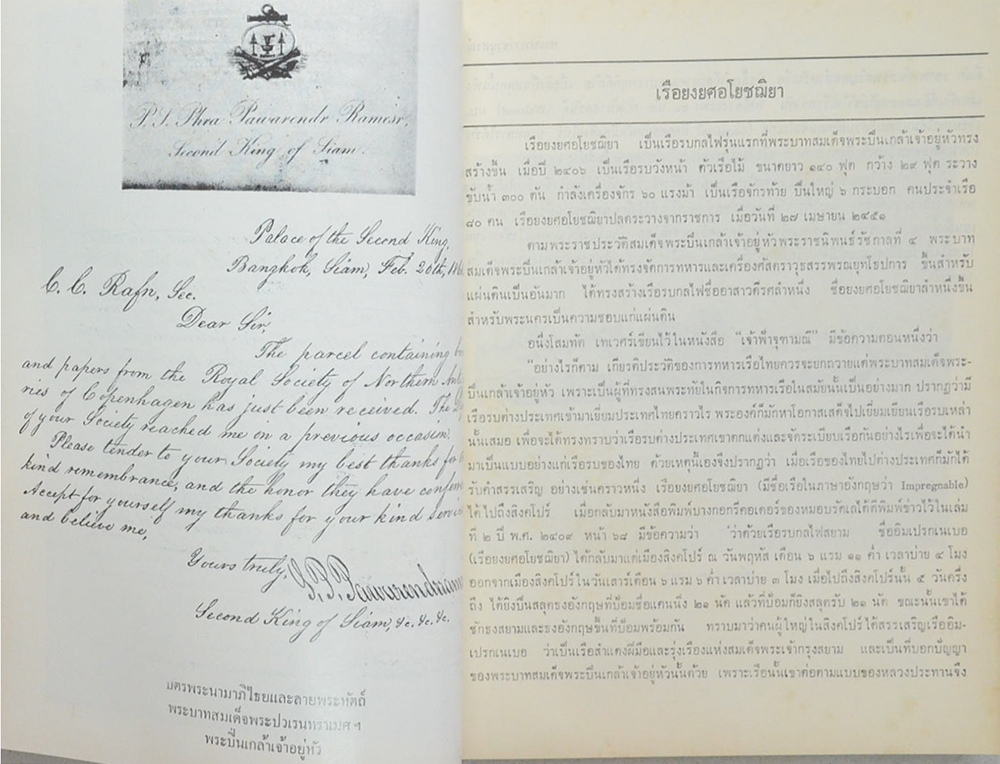 P. S. Phra Pawarendr Ramesr,
Second King of Siam.
Palace of the Second King,
Bangkok, Siam, Feb. 20th,
C. C. Rafn, Sec.
Dear Sir,
The parcel containing
and papers from the Royal Society of Northern
ries of Copenhagen has just been received. The
of your Society reached me on a previous occasion.
Please tender to your Society my best thanks for
kind remembrance, and the honor they have
Accept for yourself my thanks for your kind
and believe me,
Yours truly,
Second King of Siam, &c. &c. &c.
บัตรพระนามาภิไธยและลายพระหัตถ์
พระบาทสมเด็จพระปวเรนทราเมศฯ
พระปิ่นเกล้าเจ้าอยู่หัว
เรือยงยศอโยชฌิยา
เรือยงยศอโยชฌิยา เป็นเรือรบกลไฟรุ่นแรกที่พระบาทสมเด็จพระปิ่นเกล้าเจ้าอยู่หัวทรง
สร้างขึ้น เมื่อปี ๒๔๐๖ เป็นเรือรบวังหน้า ตัวเรือไม้ ขนาดยาว ๑๔๐ ฟุต กว้าง ๒๙ ฟุต ระวาง
ขับน้ำ ๓๐๐ ตัน กำลังเครื่องจักร ๖๐ แรงม้า เป็นเรือจักรท้าย ปืนใหญ่ ๖ กระบอก คนประจำเรือ
๘๐ คน เรือยงยศอโยชฌิยาปลดระวางจากราชการ เมื่อวันที่ ๒๗ เมษายน ๒๔๕๑
ตามพระราชประวัติสมเด็จพระปิ่นเกล้าเจ้าอยู่หัวพระราชนิพนธ์รัชกาลที่ ๔ พระบาท
สมเด็จพระปิ่นเกล้าเจ้าอยู่หัวได้ทรงจัดการทหารและเครื่องศัสตราวุธสรรพรณยุทโธปการ ขึ้นสำหรับ
แผ่นดินเป็นอันมาก ได้ทรงสร้างเรือรบกลไฟชื่ออาสาวดีรศลำหนึ่ง ชื่อยงยศอโยชฌิยาลำหนึ่งขึ้น
สำหรับพระนครเป็นความชอบแก่แผ่นดิน
อนึ่งโสมทัต เทเวศร์เขียนไว้ในหนังสือ "เจ้าฟ้าจุฑามณี" มีข้อความตอนหนึ่งว่า
"อย่างไรก็ตาม เกียรติประวัติของการทหารเรือไทยควรจะยกถวายแด่พระบาทสมเด็จพระ-
ปิ่นเกล้าเจ้าอยู่หัว เพราะเป็นผู้ที่ทรงสนพระทัยในกิจการทหารเรือในสมัยนั้นเป็นอย่างมาก ปรากฏว่ามี
เรือรบต่างประเทศเข้ามาเยี่ยมประเทศไทยคราวไร พระองค์ก็มักหาโอกาสเสด็จไปเยี่ยมเยียนเรือรบเหล่า
นั้นเสมอ เพื่อจะได้ทรงทราบว่าเรือรบต่างประเทศเขาตกแต่งและจัดระเบียบเรือกันอย่างไรเพื่อจะได้นำ
มาเป็นแบบอย่างแก่เรือรบของไทย ด้วยเหตุนี้เองจึงปรากฏว่า เมื่อเรือของไทยไปต่างประเทศก็มักได้
รับคำสรรเสริญ อย่างเช่นคราวหนึ่ง เรือยงยศอโยชฌิยา (มีชื่อเรือในภาษาอังกฤษว่า Impregnable)
ได้ไปถึงสิงคโปร์ เมื่อกลับมาหนังสือพิมพ์บางกอกรีคอเดอร์ของหมอบรัดเลได้ตีพิมพ์ข่าวไว้ในเล่ม
ที่ ๒ ปี พ.ศ. ๒๔๐๙ หน้า ๖๘ มีข้อความว่า 'ว่าด้วยเรือรบกลไฟสยาม ชื่ออิมเปรกเนเบอ
(เรือยงยศอโยชฌิยา) ได้กลับมาแต่เมืองสิงคโปร์ ณ วันพฤหัส เดือน ๖ แรม ๑๑ ค่ำ เวลาบ่าย ๔ โมง
ออกจากเมืองสิงคโปร์ในวันเสาร์เดือน ๖ แรม ๖ ค่ำ เวลาบ่าย ๓ โมง เมื่อไปถึงสิงคโปร์นั้น ๕ วันครึ่ง
ถึง ได้ยิงปืนสลุตธงอังกฤษที่ป้อมชื่อแคนนิ่ง ๒๑ นัด แล้วที่ป้อมก็ยิงสลุตรับ ๒๑ นัด ขณะนั้นเขาได้
ชักธงสยามและธงอังกฤษขึ้นที่ป้อมพร้อมกัน ทราบมาว่าคนผู้ใหญ่ในสิงคโปร์ได้สรรเสริญเรืออิม-
เปรกเนเบอ ว่าเป็นเรือสำแดงฝีมือและรุ่งเรืองแห่งสมเด็จพระเจ้ากรุงสยาม และเป็นที่บอกปัญญา
ของพระบาทสมเด็จพระปิ่นเกล้าเจ้าอยู่หัวนั้นด้วย เพราะเรือนั้นเขาต่อตามแบบของหลวงประทานจึง